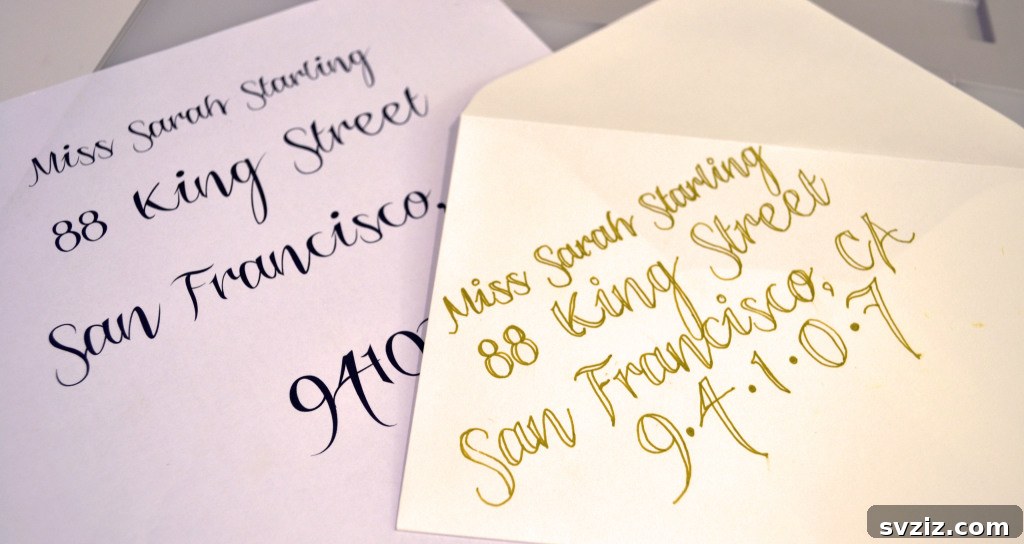 Miss Sarah Starling
88 King Street
San Francisco,
Miss Sarah Starling
88 King Street
San Francisco, CA
9.4.1.0.7
svziz.com